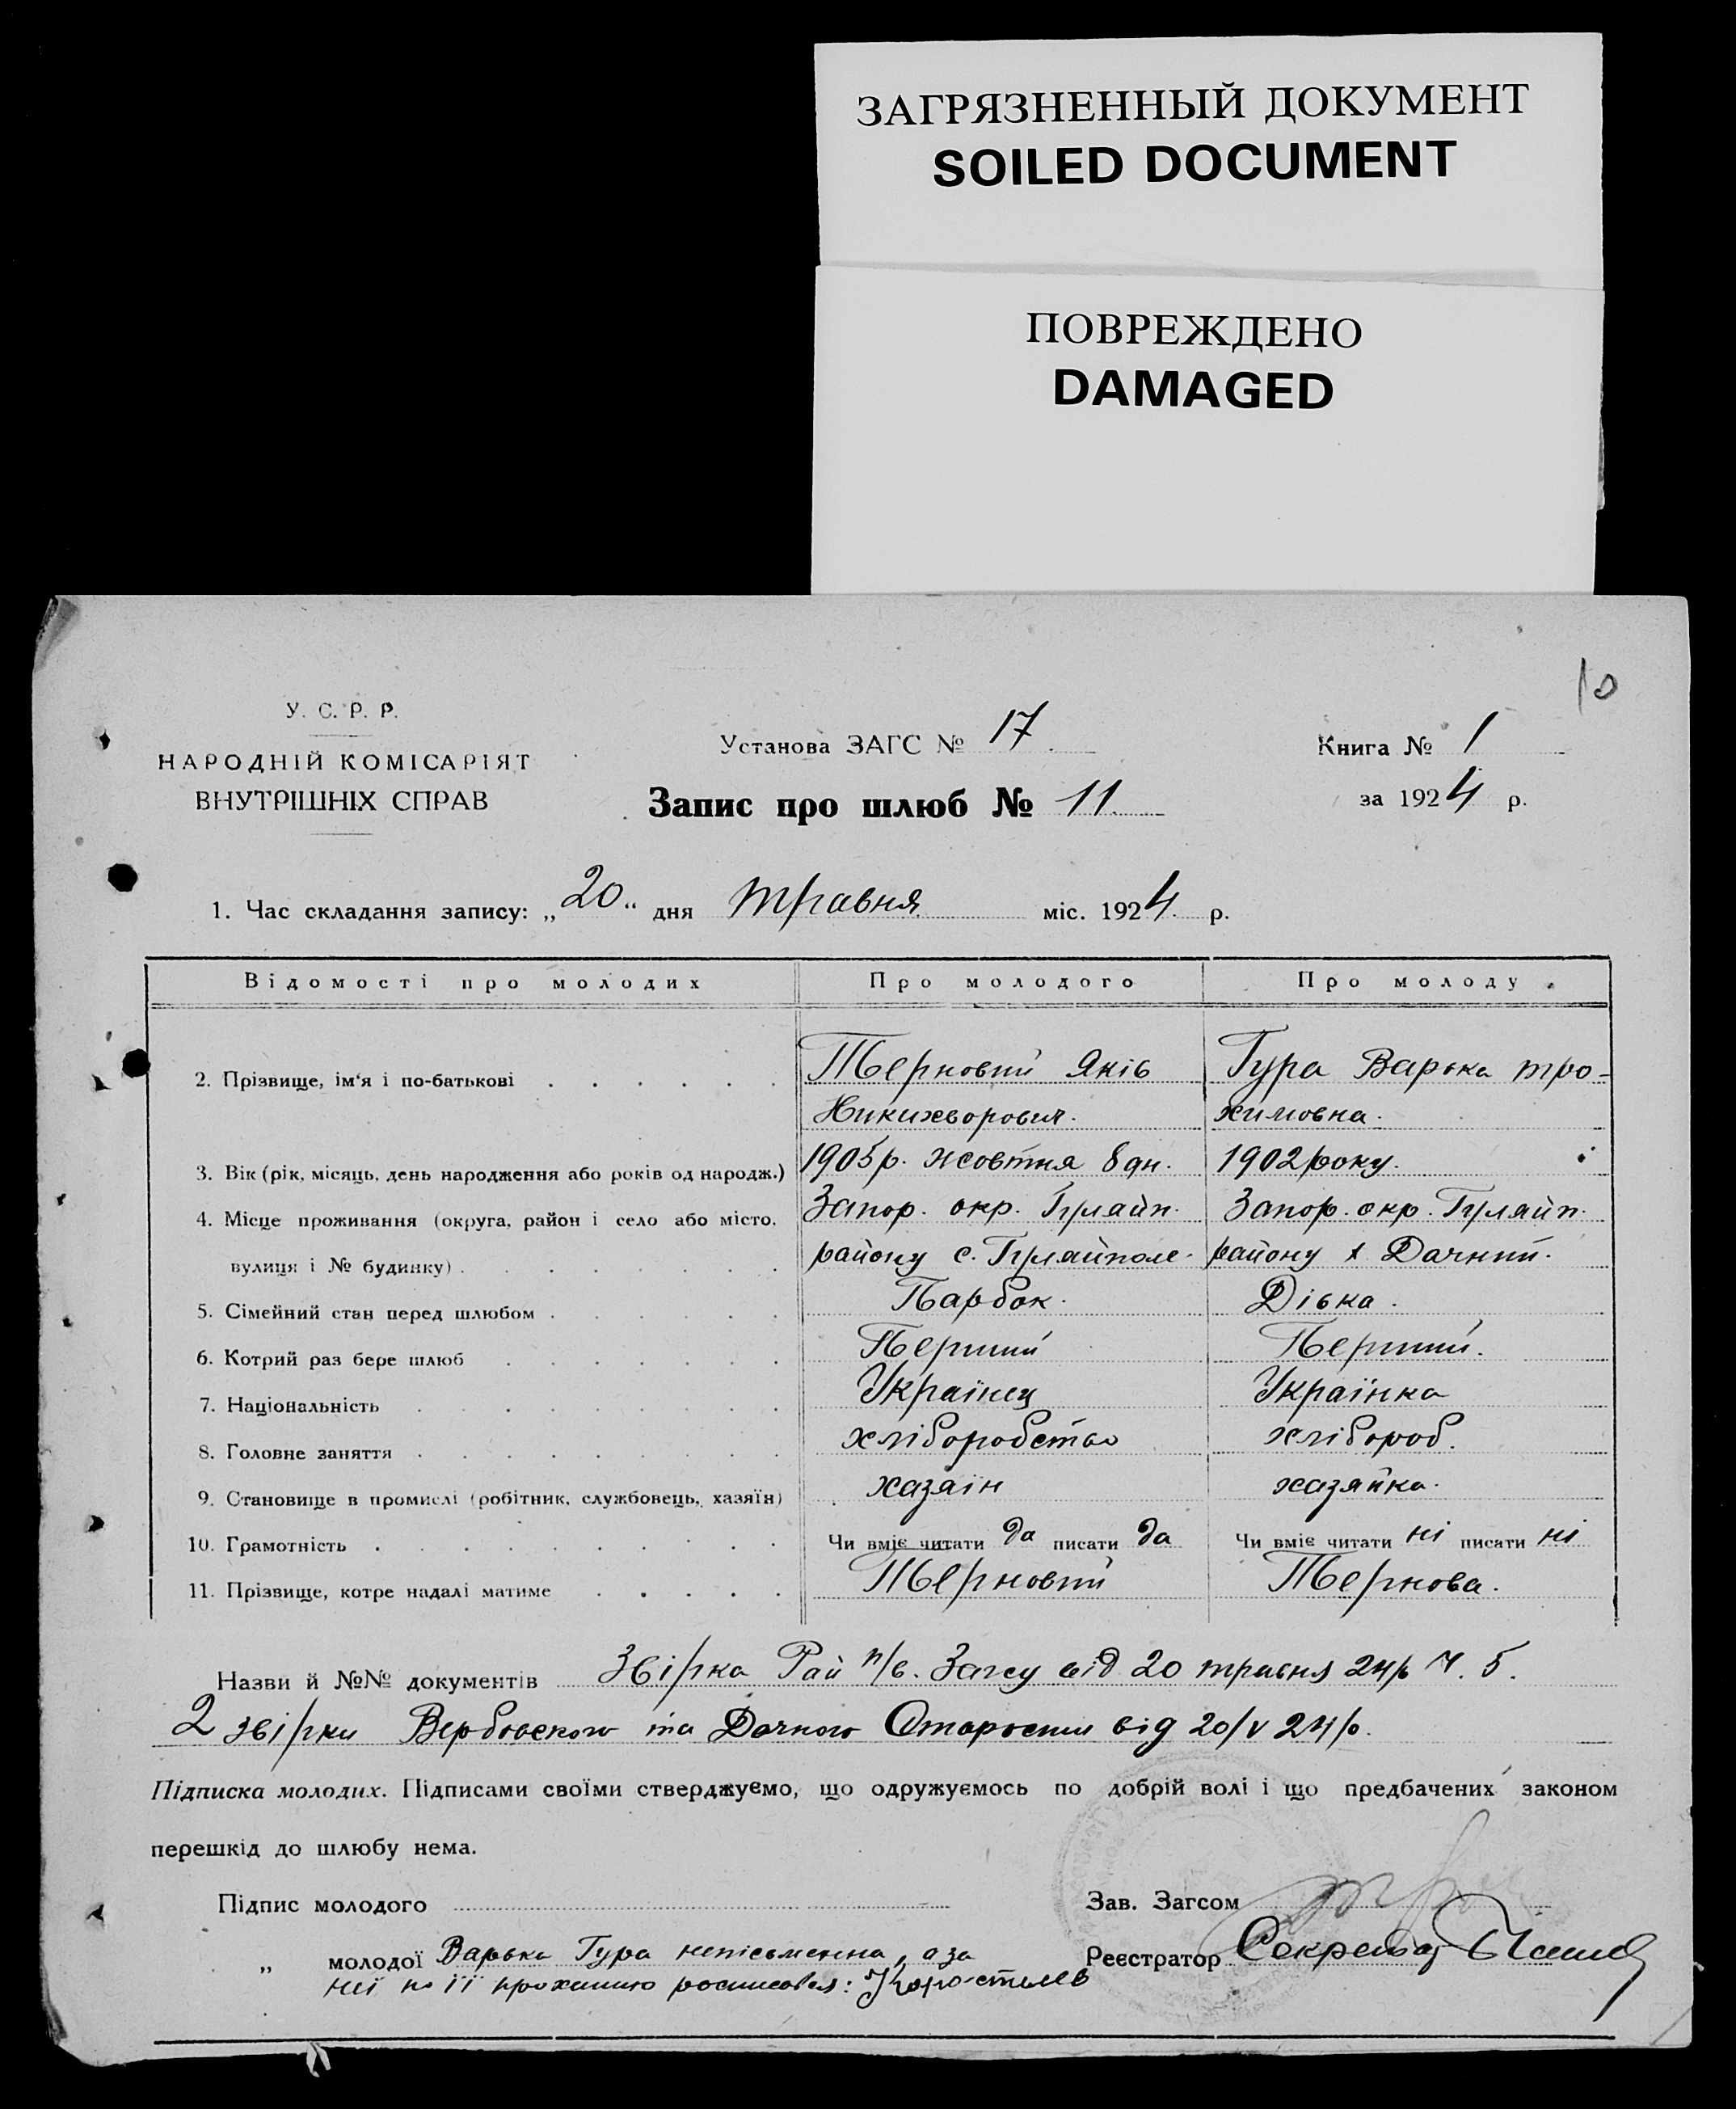 ЗАГРЯЗНЕННЫЙ ДОКУМЕНТ
SOILED DOCUMENT
ПОВРЕЖДЕНО
DAMAGED
10
У. С. Р. Р.
НАРОДНІЙ КОМІСАРІЯТ
ВНУТРІШНІХ СПРАВ
Установа ЗАГС № 17
Книга № 1
Запис про шлюб № 11
за 1924 р.
1. Час складання запису: „20“ дня травня міс. 1924 р.
Відомості про молодих Про молодого Про молоду
2. Прізвище, ім'я і по-батькові Терновий Яків Гура Варька тро-
Никихворович. химовна.
3. Вік (рік, місяць, день народження або років од народж.) 1905 р. жовтня 8 дн. 1902 року.
4. Місце проживання (округа, район і село або місто, Запор. окр. Гуляйп. Запор. окр. Гуляйп.
вулиця і № будинку) району с. Гуляйполе. району х Дачний.
5. Сімейний стан перед шлюбом Парбок. Дівка.
6. Котрий раз бере шлюб Перший Перший.
7. Національність Українец Українка
8. Головне заняття хліборобство хлібороб.
9. Становище в промислі (робітник, службовець, хазяїн) хазаїн хазяйка.
10. Грамотність Чи вміє читати да писати да Чи вміє читати ні писати ні
11. Прізвище, котре надалі матиме Терновий Тернова.
Назви й №№ документів Звірка Рай п/в. Загсу від 20 травня 24 р Ч. 5.
2 звірки Вербовского та Дачного Старостив від 20/V 24 р.
Підписка молодих. Підписами своїми стверджуємо, що одружуємось по добрій волі і що предбачених законом
перешкід до шлюбу нема.
Підпис молодого Зав. Загсом
„ молодої Варька Гура неписьменна, а за Реєстратор Секретар
неї по її проханню росписовся: Коростылев